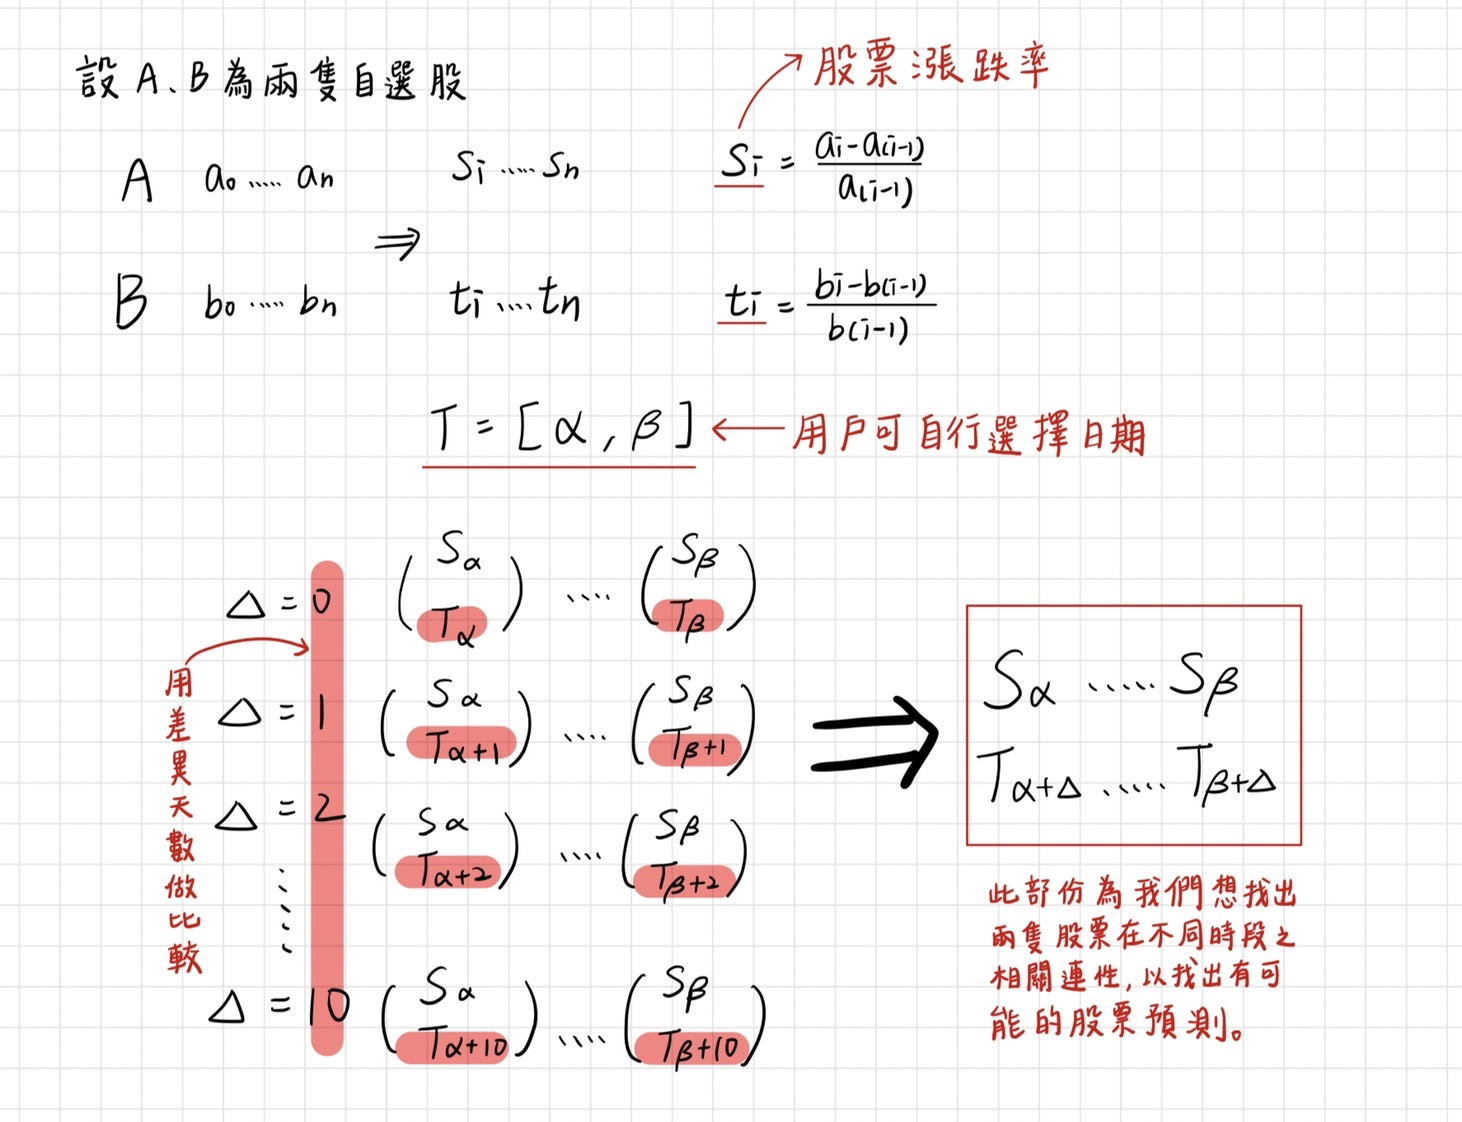 設A、B為兩隻自選股
股票漲跌率
A a₀ ..... aₙ Sᵢ ..... Sₙ Sᵢ = (aᵢ-a(i-1))/(a(i-1))
⇒
B b₀ ..... bₙ tᵢ .... tₙ tᵢ = (bᵢ-b(i-1))/(b(i-1))
T = [α, β] ← 用戶可自行選擇日期
Δ = 0 (Sα Tα) .... (Sβ Tβ)
用差異天數做比較
Δ = 1 (Sα Tα+1) .... (Sβ Tβ+1)
Δ = 2 (Sα Tα+2) .... (Sβ Tβ+2)
Δ = 10 (Sα Tα+10) .... (Sβ Tβ+10)
⇒
Sα ..... Sβ
Tα+Δ ..... Tβ+Δ
此部份為我們想找出
兩隻股票在不同時段之
相關連性,以找出有可
能的股票預測。